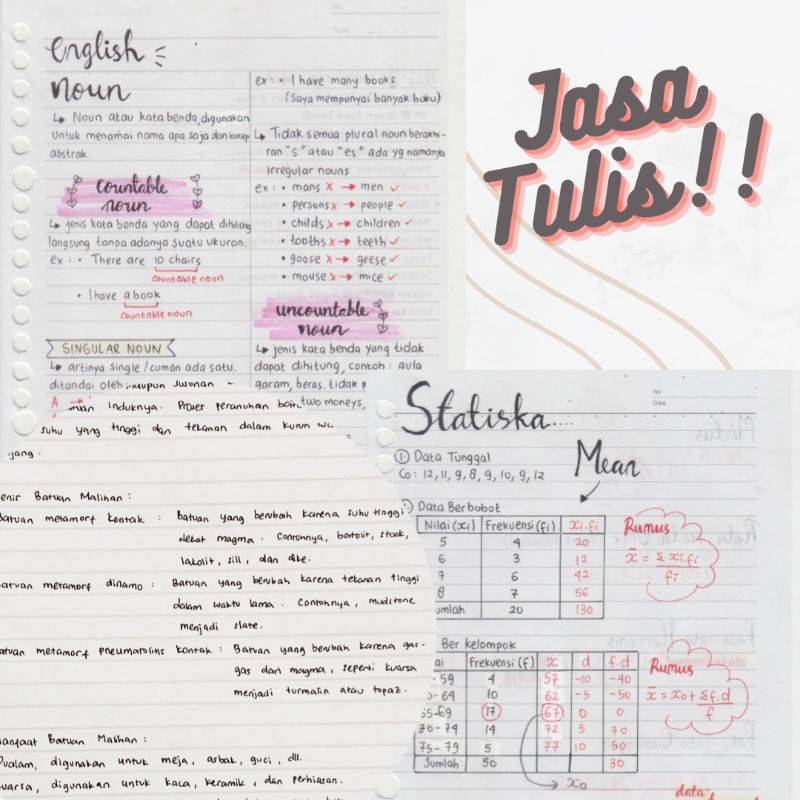 english
noun
↳ Noun atau kata benda, digunakan
untuk menamai nama apa saja dan konsep
abstrak.
countable
noun
↳ jenis kata benda yang dapat dihitung
langsung tanpa adanya suatu ukuran.
ex : • There are 10 chairs
countable noun
• I have a book
countable noun
SINGULAR NOUN
↳ artinya single / cuman ada satu.
ditandai oleh
A →
No.
Date
ex : • I have many books
(Saya mempunyai banyak buku)
↳ Tidak semua plural noun berakhi-
ran "s" atau "es" ada yg namanya
irregular nouns
ex : • mans x → men ✓
• persons x → people ✓
• childs x → children ✓
• tooths x → teeth ✓
• goose x → geese ✓
• mouse x → mice ✓
uncountable
noun
↳ jenis kata benda yang tidak
dapat dihitung, contoh : gula
garam, beras. tidak
two moneys,
Jasa
Tulis!!
maupun susunan -
induknya. Proses perubahan
suhu yang tinggi dan tekanan dalam kurun
Batuan Malihan :
Batuan metamorf kontak : Batuan yang berubah karena suhu tinggi
dekat magma. Contohnya, batolit, stock,
lakolit, sill, dan dike.
Batuan metamorf dinamo : Batuan yang berubah karena tekanan tinggi
dalam waktu lama. Contohnya, mudstone
menjadi slate.
Batuan metamorf pneumatolitis kontak : Batuan yang berubah karena gas-
gas dari magma, seperti kuarsa
menjadi turmalin atau topaz.
Manfaat Batuan Malihan :
Pualam, digunakan untuk meja, asbak, guci, dll.
kuarsa, digunakan untuk kaca, keramik, dan perhiasan.
No
Date
Statiska....
① Data Tunggal
Co : 12, 11, 9, 8, 9, 10, 9, 12
Mean
Data Berbobot
Nilai (xi) Frekuensi (fi) xi.fi
5 4 20
6 3 12
7 6 42
8 7 56
Jumlah 20 130
Rumus
x̄ = Σ xi.fi / fi
Ber kelompok
Frekuensi (f) x d f.d
-59 4 57 -10 -40
-64 10 62 -5 -50
65-69 17 67 0 0
70-74 14 72 5 70
75-79 5 77 10 50
Jumlah 50 30
x0
Rumus
x̄ = x0 + Σ f.d / f
data